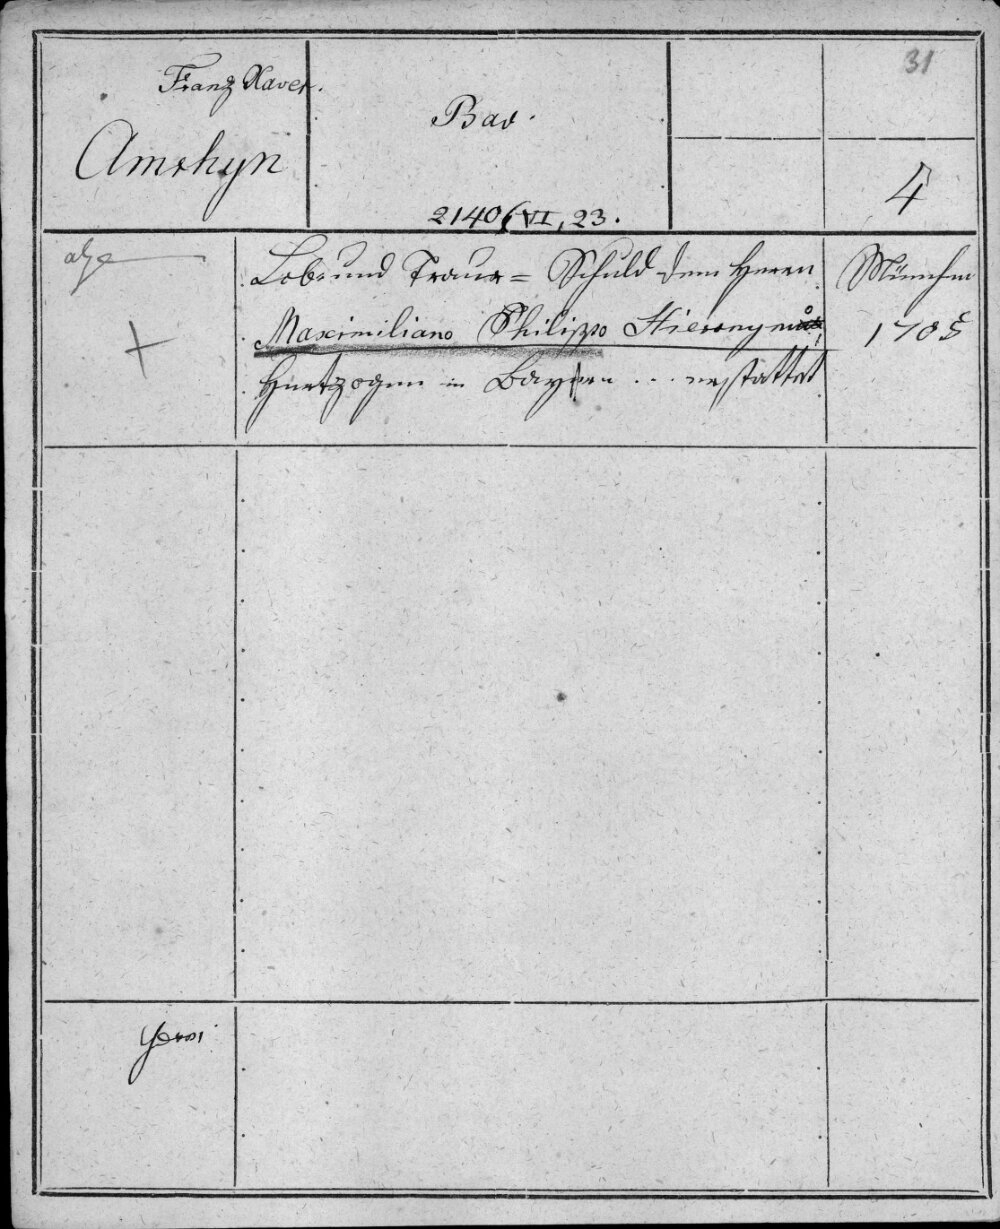 31
Franz Xaver.
Amrhyn
Bav.
2140/VI, 23.
4
Lob- und Traur= Schuld dem Herrn
Maximiliano Philippo Hieronymo,
Hertzogen in Bayern ... erstattet
München
1705